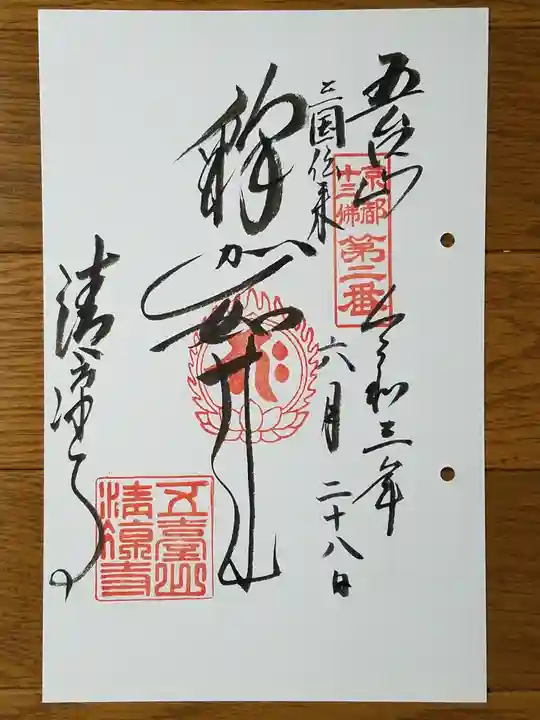 五台山
令和三年
六月二十八日
京都
十三佛
第二番
三国伝来
釋迦如来
清凉寺
五臺山
清凉寺